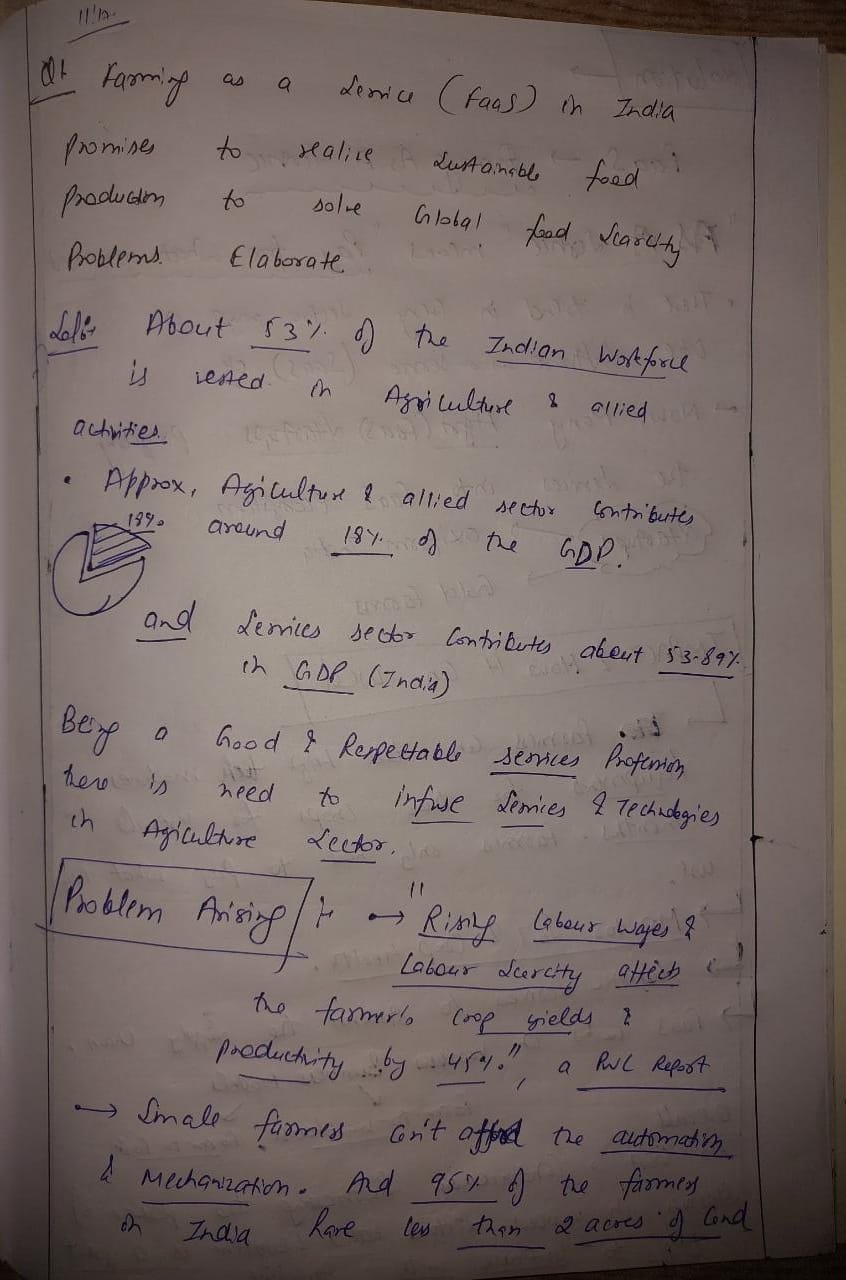 Q1 Farming as a Service (FaaS) in India
Promises to realise Sustainable food
Production to solve Global food Scarcity
Problems. Elaborate.
Sol:- About 53% of the Indian Workforce
is vested in Agriculture & allied
activities.
• Approx, Agriculture & allied sector contributes
18% around 18% of the GDP.
and Services sector Contributes about 53.89%
in GDP (India)
Being a Good & Respectable services Profession,
there is need to infuse Services & Technologies
in Agriculture Sector.
Problem Arising :- → "Rising Labour Wages &
Labour Scarcity affects
the farmer's crop yields &
Productivity by 45%.", a PWC Report
→ Small farmers Can't afford the automation
& Mechanization. And 95% of the farmers
in India have less than 2 acres of land